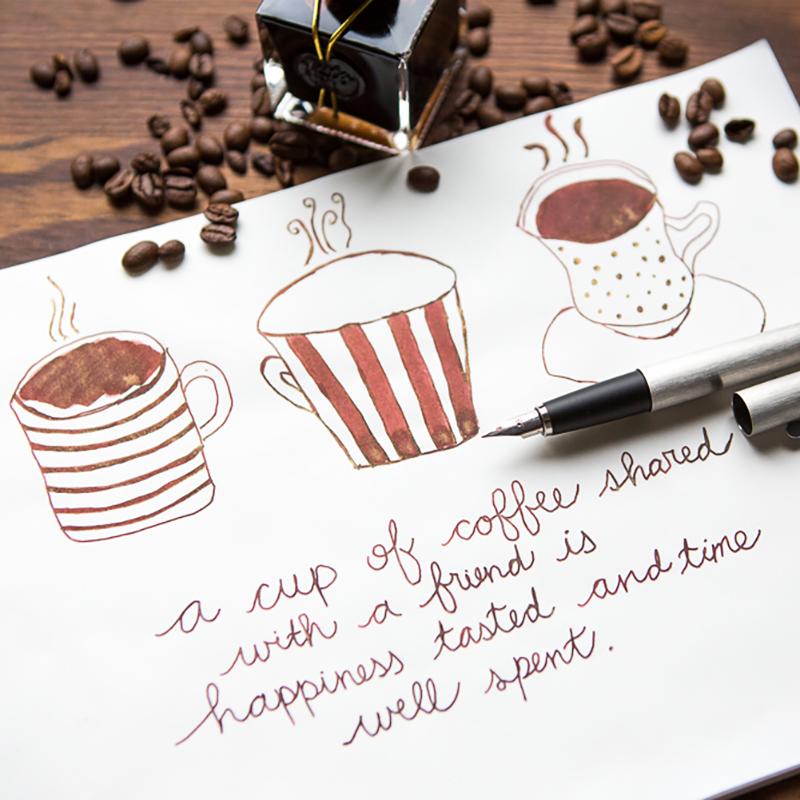 a cup of coffee shared
with a friend is
happiness tasted and time
well spent.